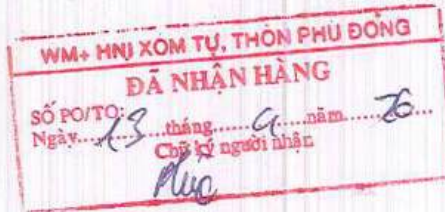 WM+ HNI XOM TỰ, THÔN PHÙ ĐỔNG
ĐÃ NHẬN HÀNG
SỐ PO/TO:
Ngày....13....tháng......9....năm......26....
Chữ ký người nhận